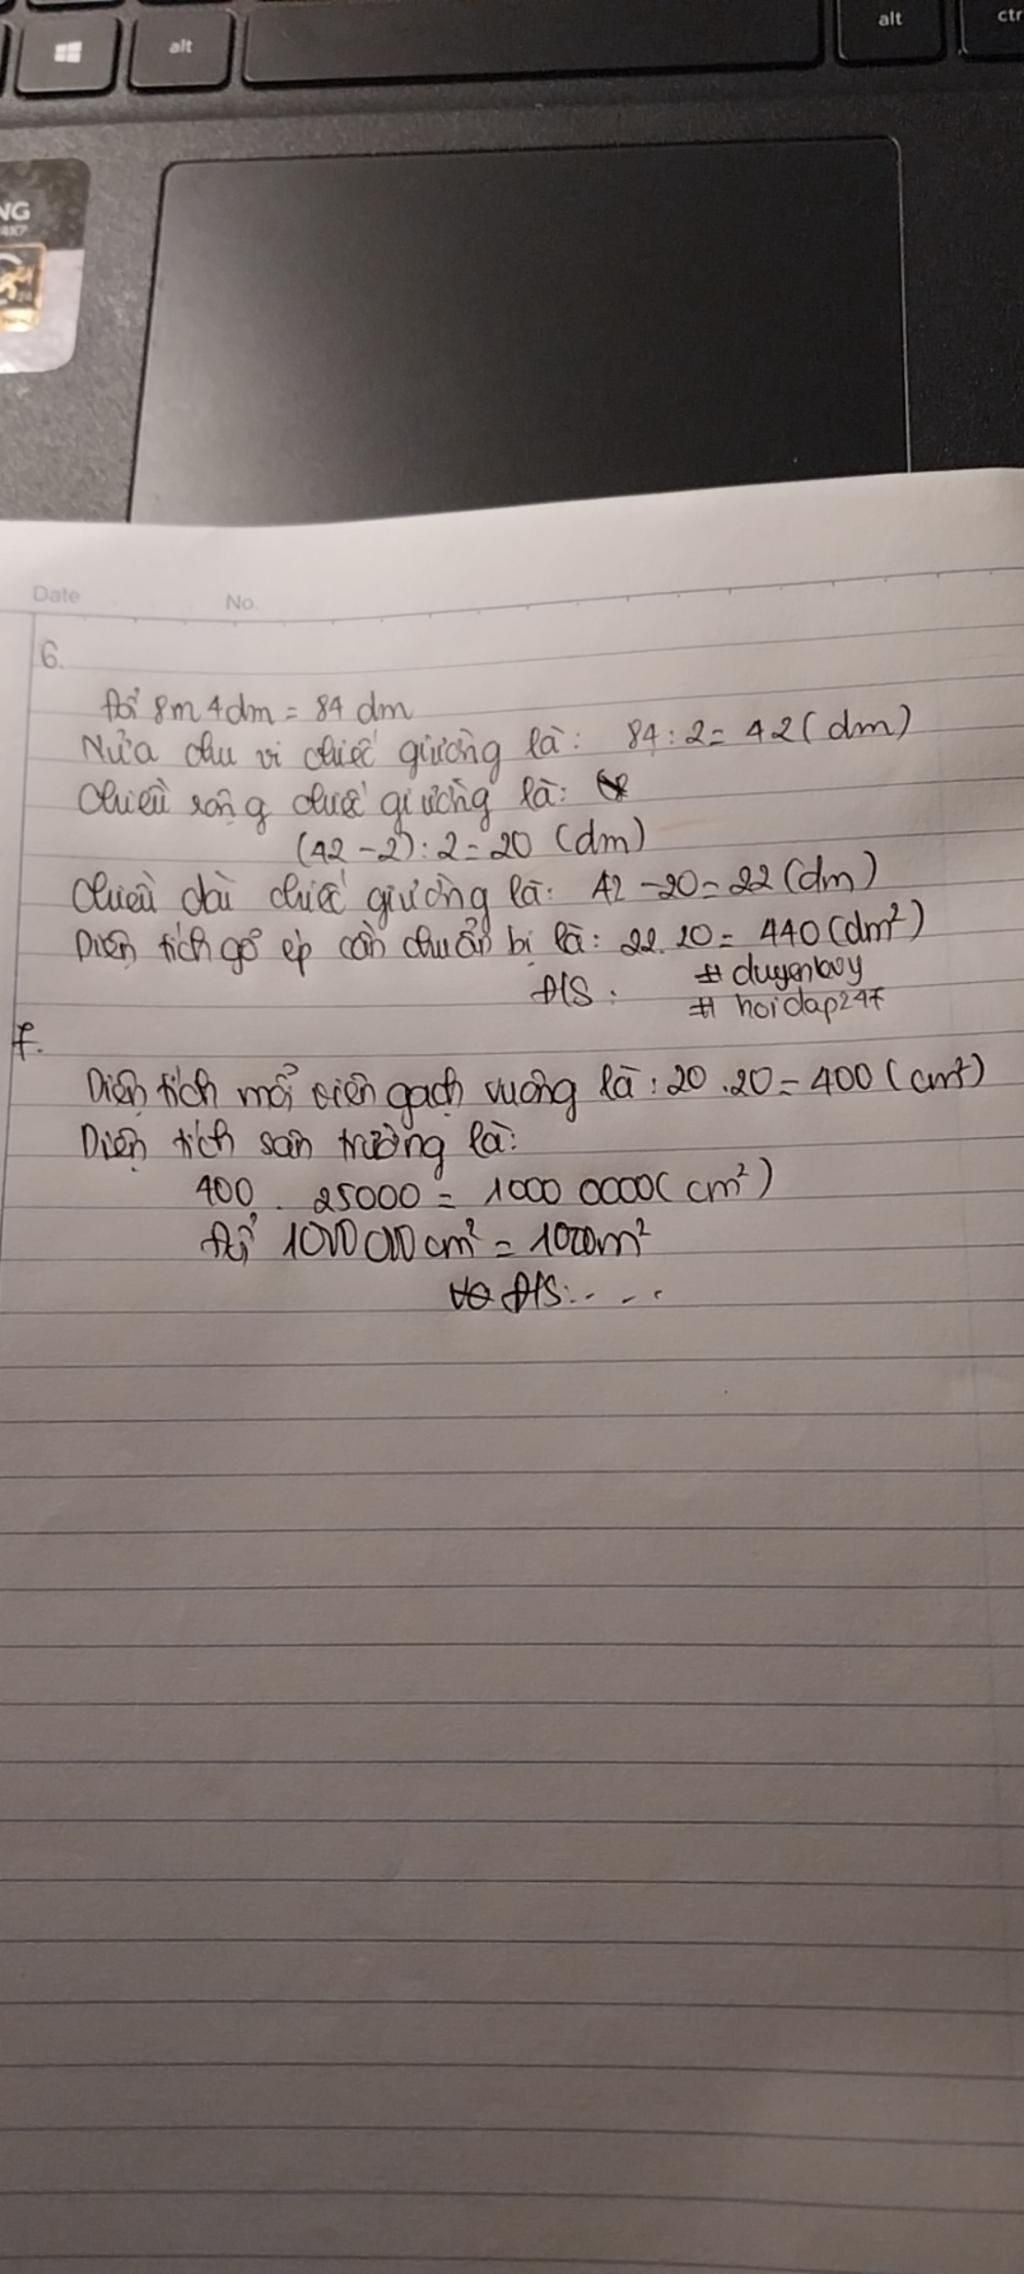 alt
alt
ctr
NG
Date
No.
6.
Đổi 8m 4dm = 84 dm
Nửa chu vi chiếc giường là: 84 : 2 = 42 (dm)
Chiều rộng chiếc giường là:
(42 - 2) : 2 = 20 (dm)
Chiều dài chiếc giường là: 42 - 20 = 22 (dm)
Diện tích gỗ ép cần chuẩn bị là: 22 . 20 = 440 (dm²)
Đ/S : # duyenbuy
# hoidap247
7.
Diện tích mỗi viên gạch vuông là : 20 . 20 = 400 (cm²)
Diện tích sân trường là:
400 . 25000 = 1000 0000 (cm²)
Đổi 10000000 cm² = 1000m²
Đ/S: . . . .